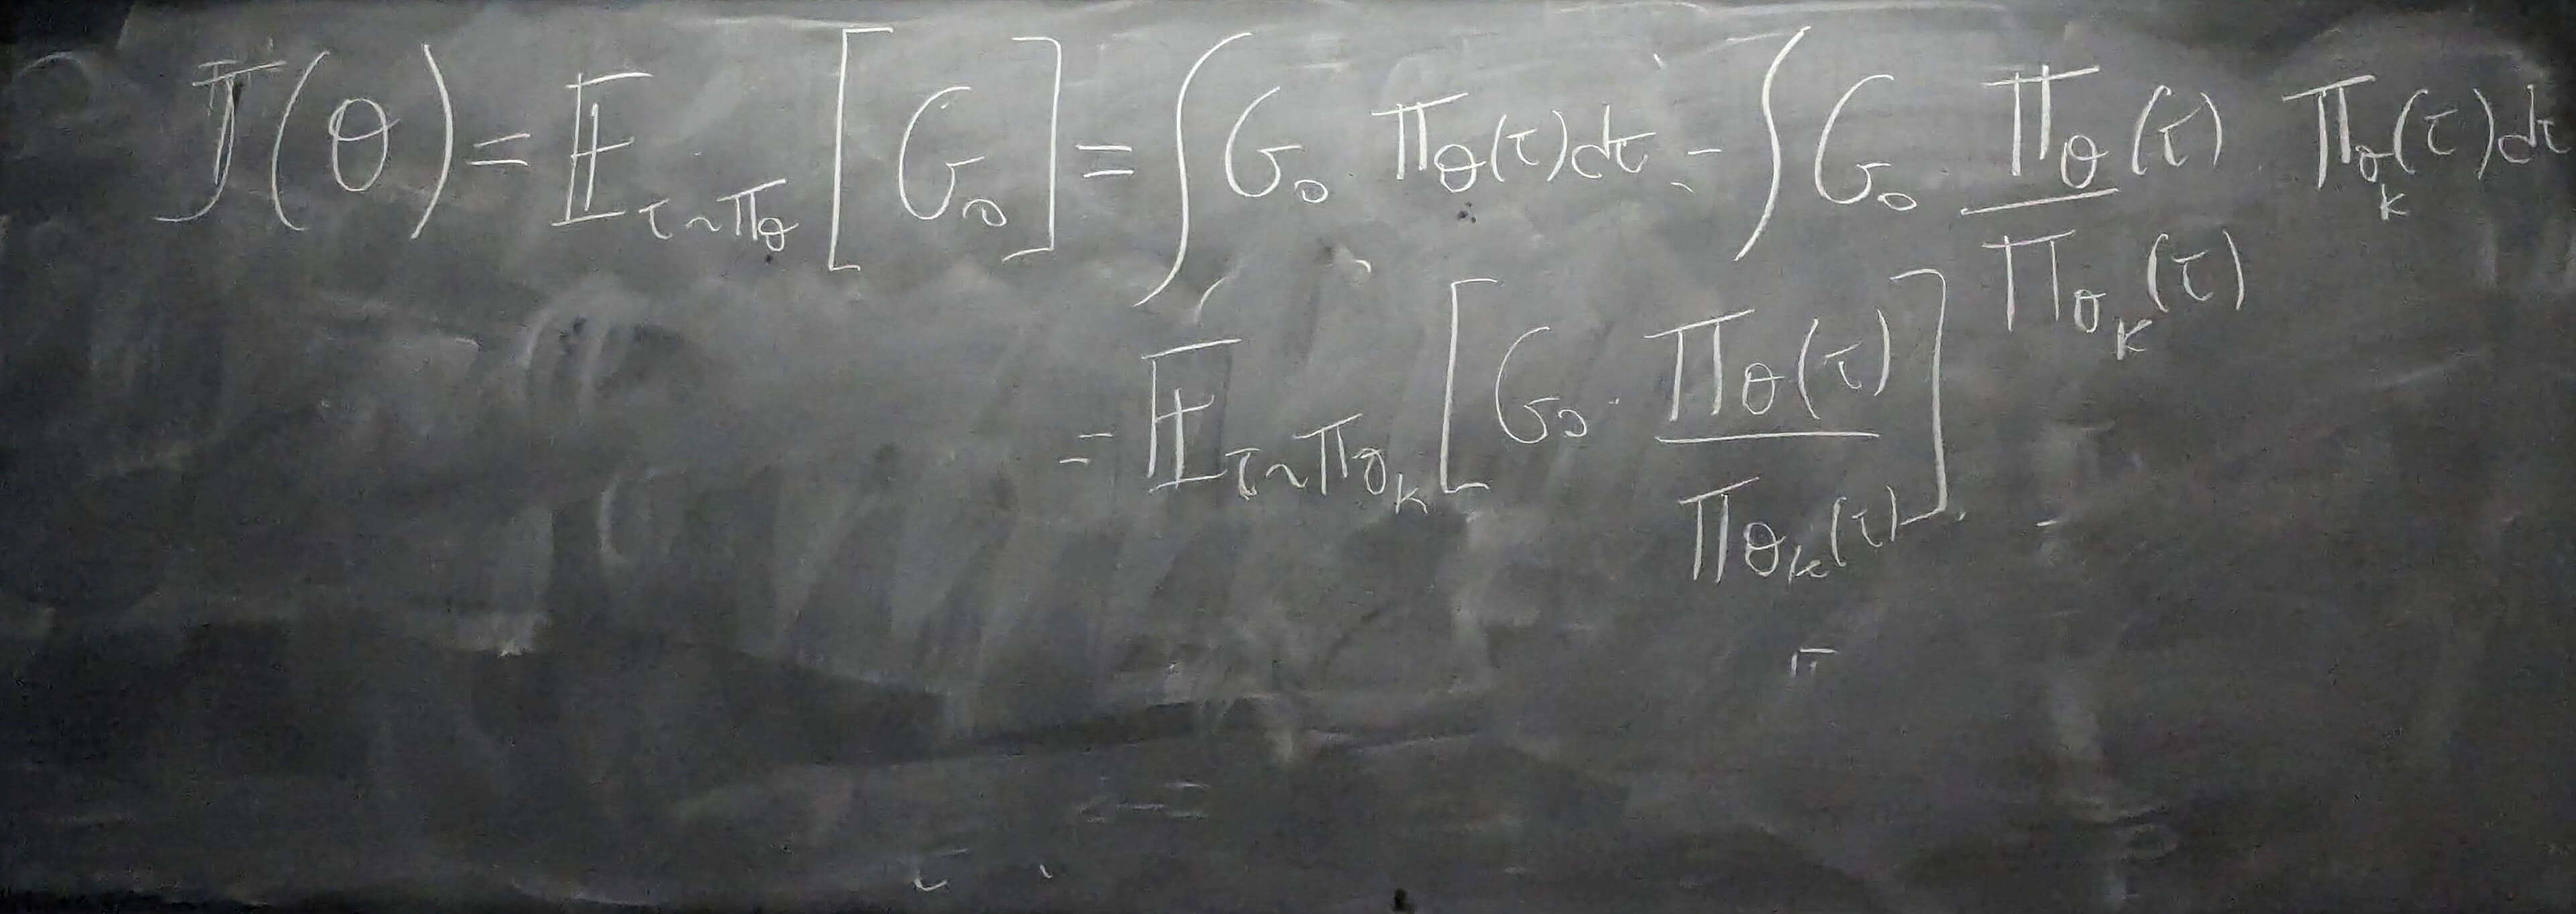 J(θ) = 𝔼_{τ∼π_θ} [G₀] = ∫ G₀ · π_θ(τ)dτ = ∫ G₀ · π_θ(τ) / π_{θ_k}(τ) π_{θ_k}(τ)dτ
= 𝔼_{τ∼π_{θ_k}} [G₀ · π_θ(τ) / π_{θ_k}(τ)]